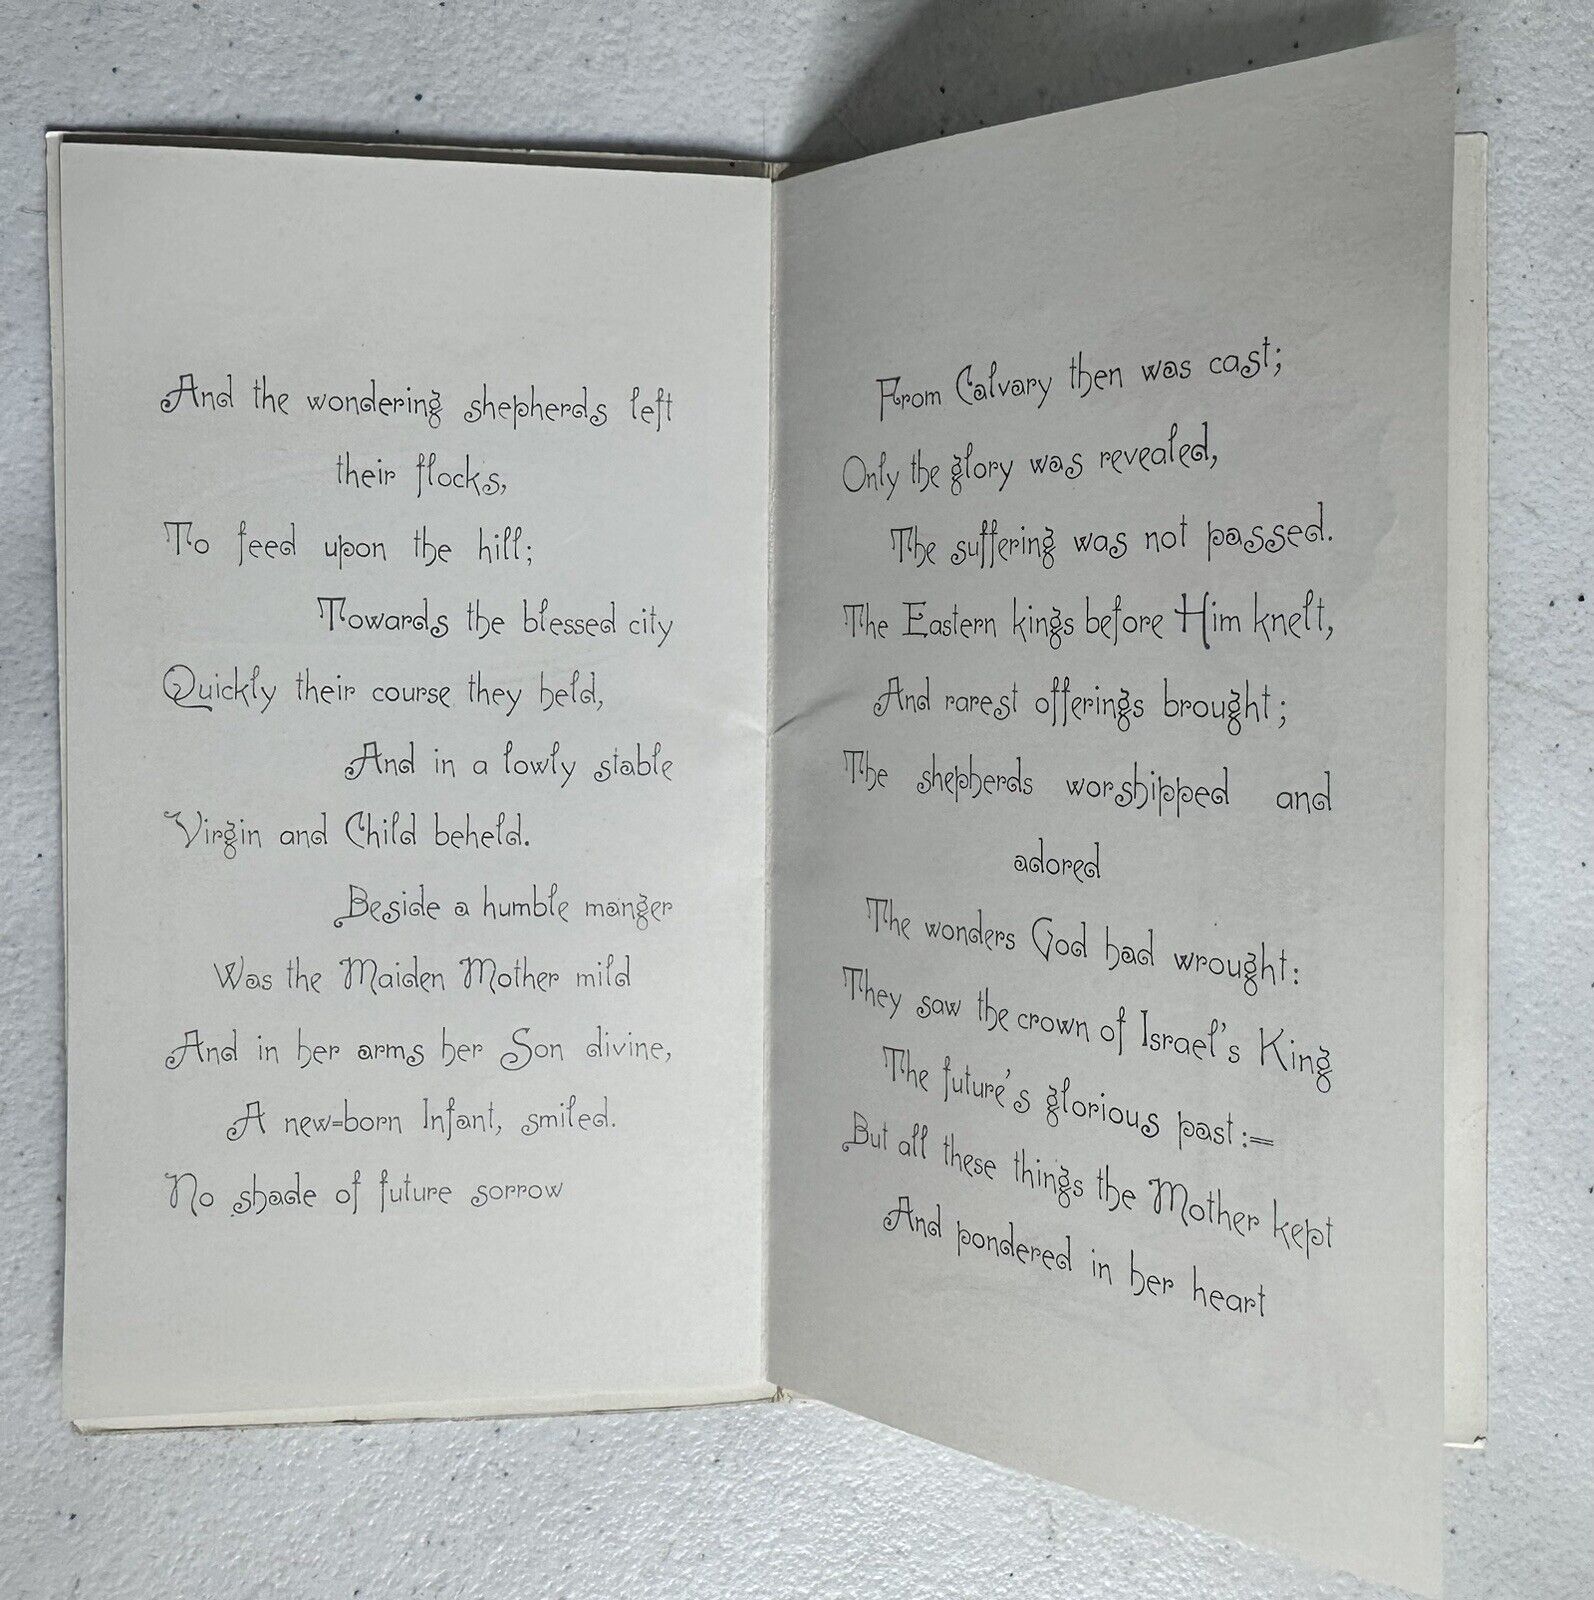 And the wondering shepherds left
their flocks,
To feed upon the hill;
Towards the blessed city
Quickly their course they held,
And in a lowly stable
Virgin and Child beheld.
Beside a humble manger
Was the Maiden Mother mild
And in her arms her Son divine,
A new=born Infant, smiled.
No shade of future sorrow
From Calvary then was cast;
Only the glory was revealed,
The suffering was not passed.
The Eastern kings before Him knelt,
And rarest offerings brought;
The shepherds worshipped and
adored
The wonders God had wrought:
They saw the crown of Israel's King
The future's glorious past:=
But all these things the Mother kept
And pondered in her heart